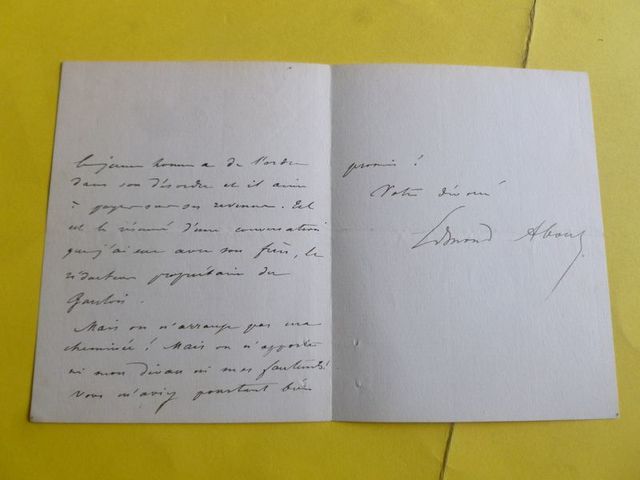 le jeune homme a de l'ordre
dans son désordre et il aime
à payer sur ses revenus. Tel
est le résumé d'une conversation
que j'ai eue avec son frère, le
rédacteur propriétaire du
Gaulois.
Mais on n'arrange pas ma
cheminée! Mais on n'apporte
ni mon divan ni mes fauteuils!
Vous m'aviez pourtant bien
promis!
Votre dévoué
Edmond About